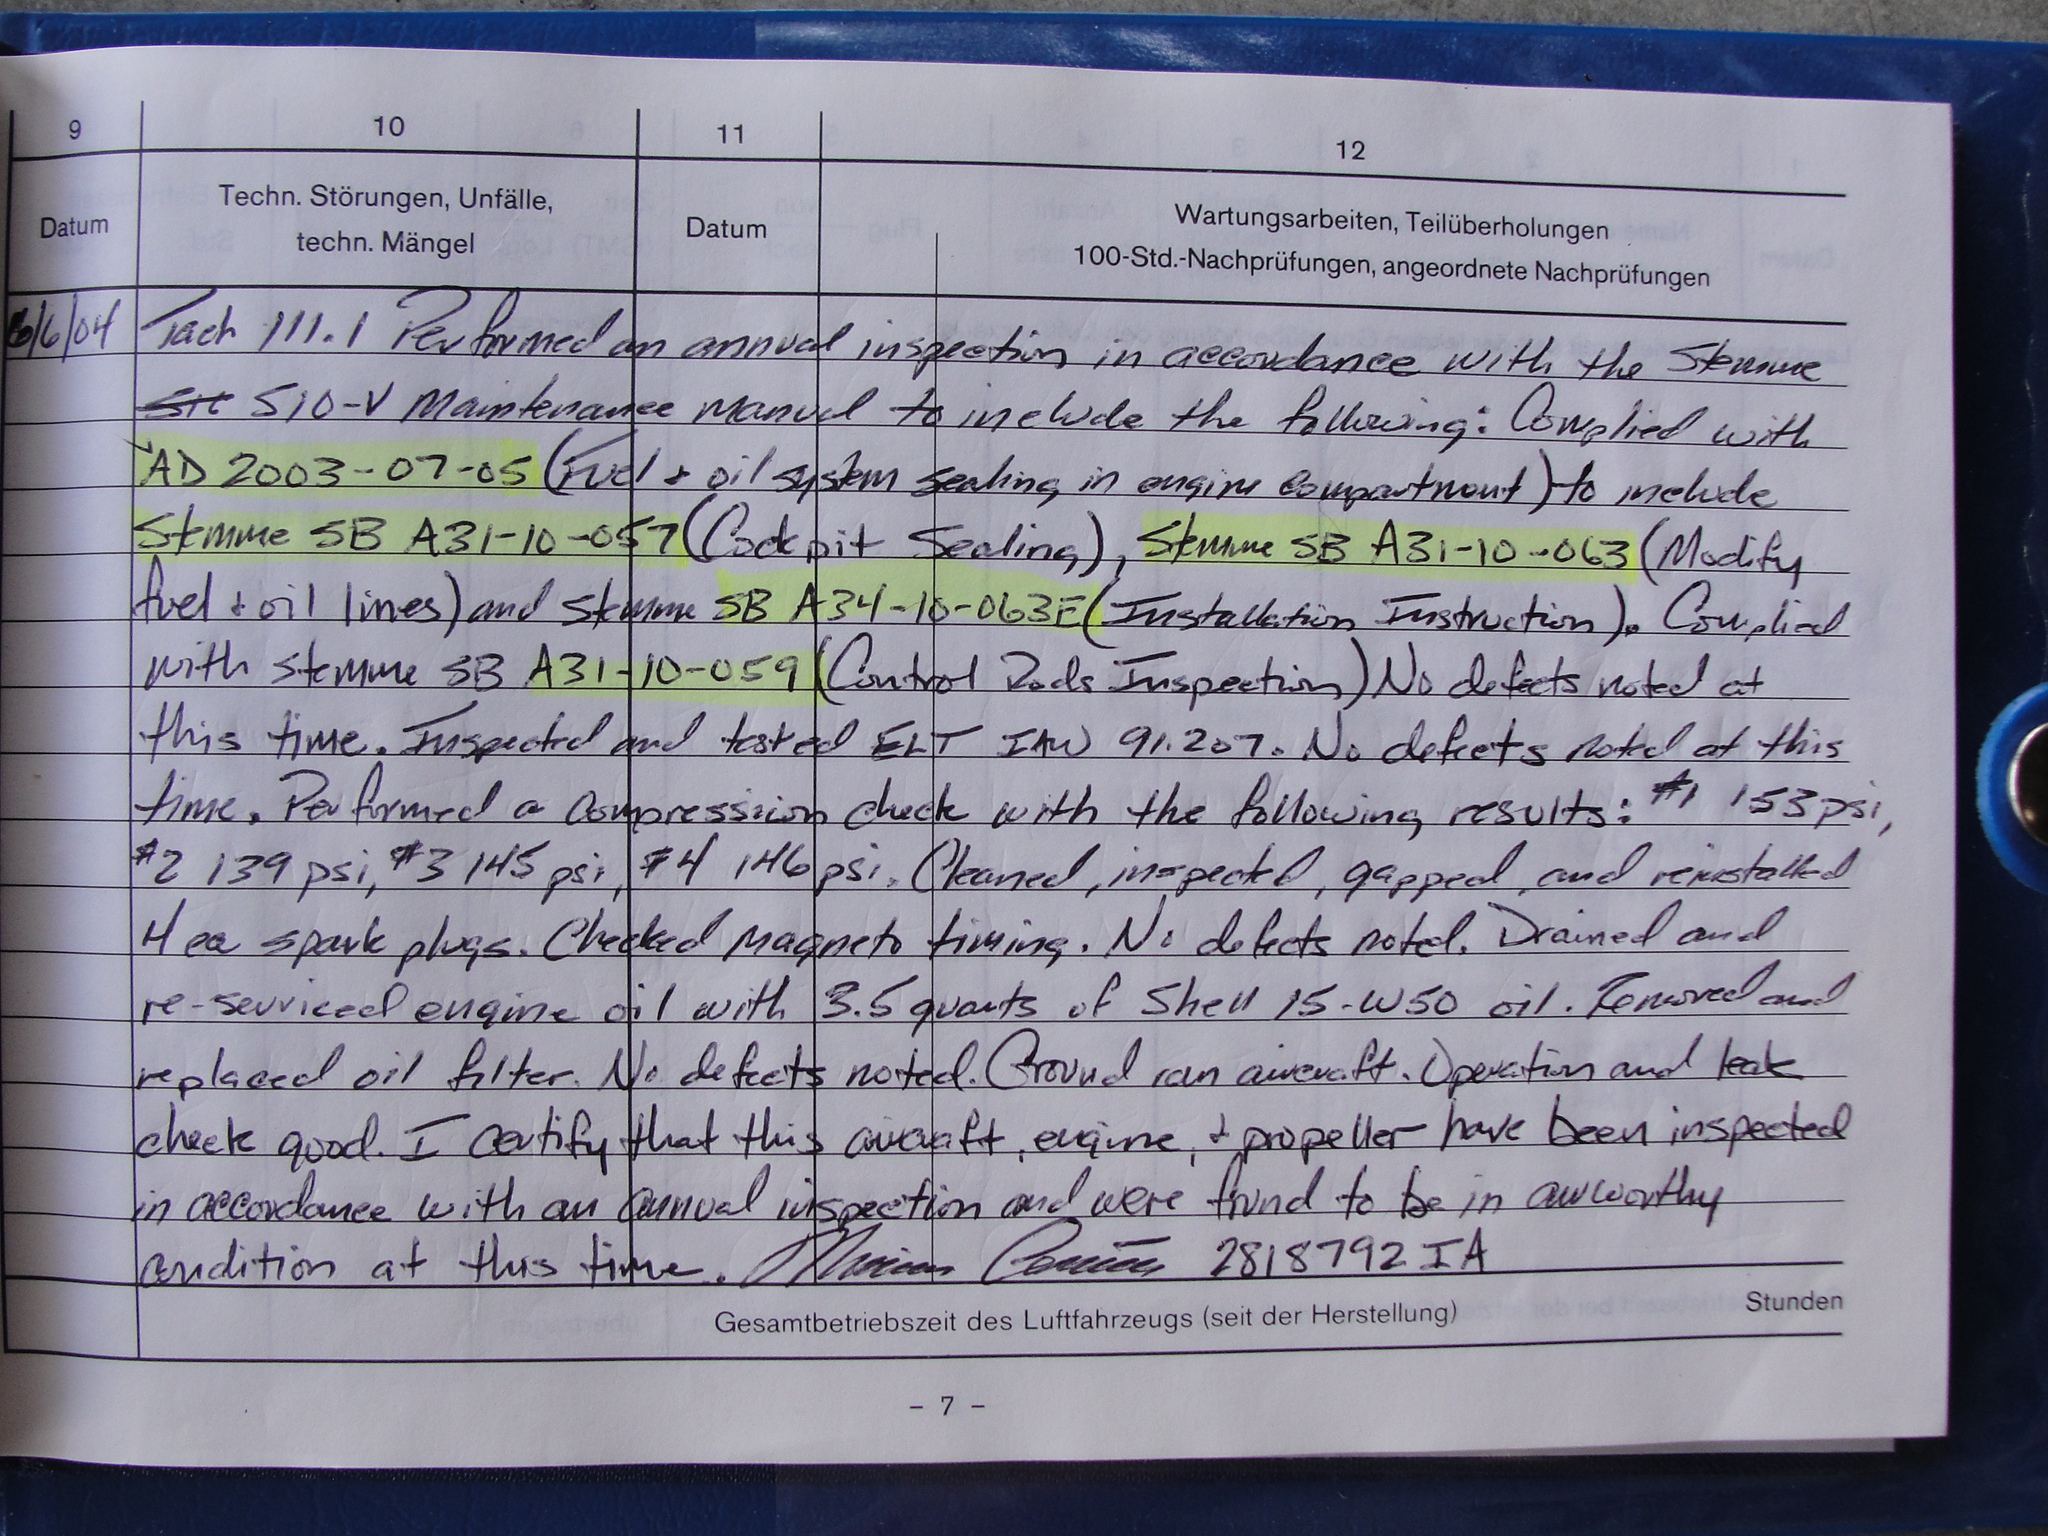 9 10 11 12
Datum
Techn. Störungen, Unfälle,
techn. Mängel
Datum
Wartungsarbeiten, Teilüberholungen
100-Std.-Nachprüfungen, angeordnete Nachprüfungen
6/6/04 Tach 111.1 Performed an annual inspection in accordance with the Stemme
S10-V Maintenance manual to include the following: Complied with
AD 2003-07-05 (Fuel + oil system sealing in engine compartment) to include
Stemme SB A31-10-057 (Cockpit Sealing), Stemme SB A31-10-063 (Modify
fuel + oil lines) and Stemme SB A34-10-063E (Installation Instruction). Complied
with Stemme SB A31-10-059 (Control Rods Inspection) No defects noted at
this time. Inspected and tested ELT IAW 91.207. No defects noted at this
time. Performed a compression check with the following results: #1 153 psi,
#2 139 psi, #3 145 psi, #4 146 psi. Cleaned, inspected, gapped, and reinstalled
4 ea spark plugs. Checked Magneto timing. No defects noted. Drained and
re-serviced engine oil with 3.5 quarts of Shell 15-W50 oil. Removed and
replaced oil filter. No defects noted. Ground ran aircraft. Operation and leak
check good. I certify that this aircraft, engine, + propeller have been inspected
in accordance with an annual inspection and were found to be in airworthy
condition at this time. 2818792 IA
Gesamtbetriebszeit des Luftfahrzeugs (seit der Herstellung) Stunden
- 7 -